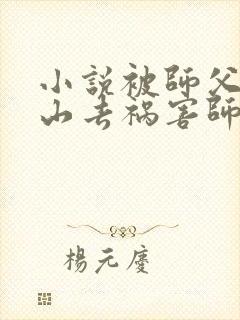 小説被師父
山去禍害師
楊元慶